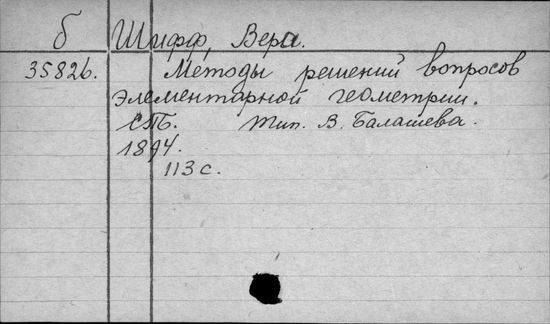 б Шифф, Вера.
35826. Методы решений вопросов
элементарной геометрии.
СПБ. Тип. В. Балашева.
1894.
113 с.